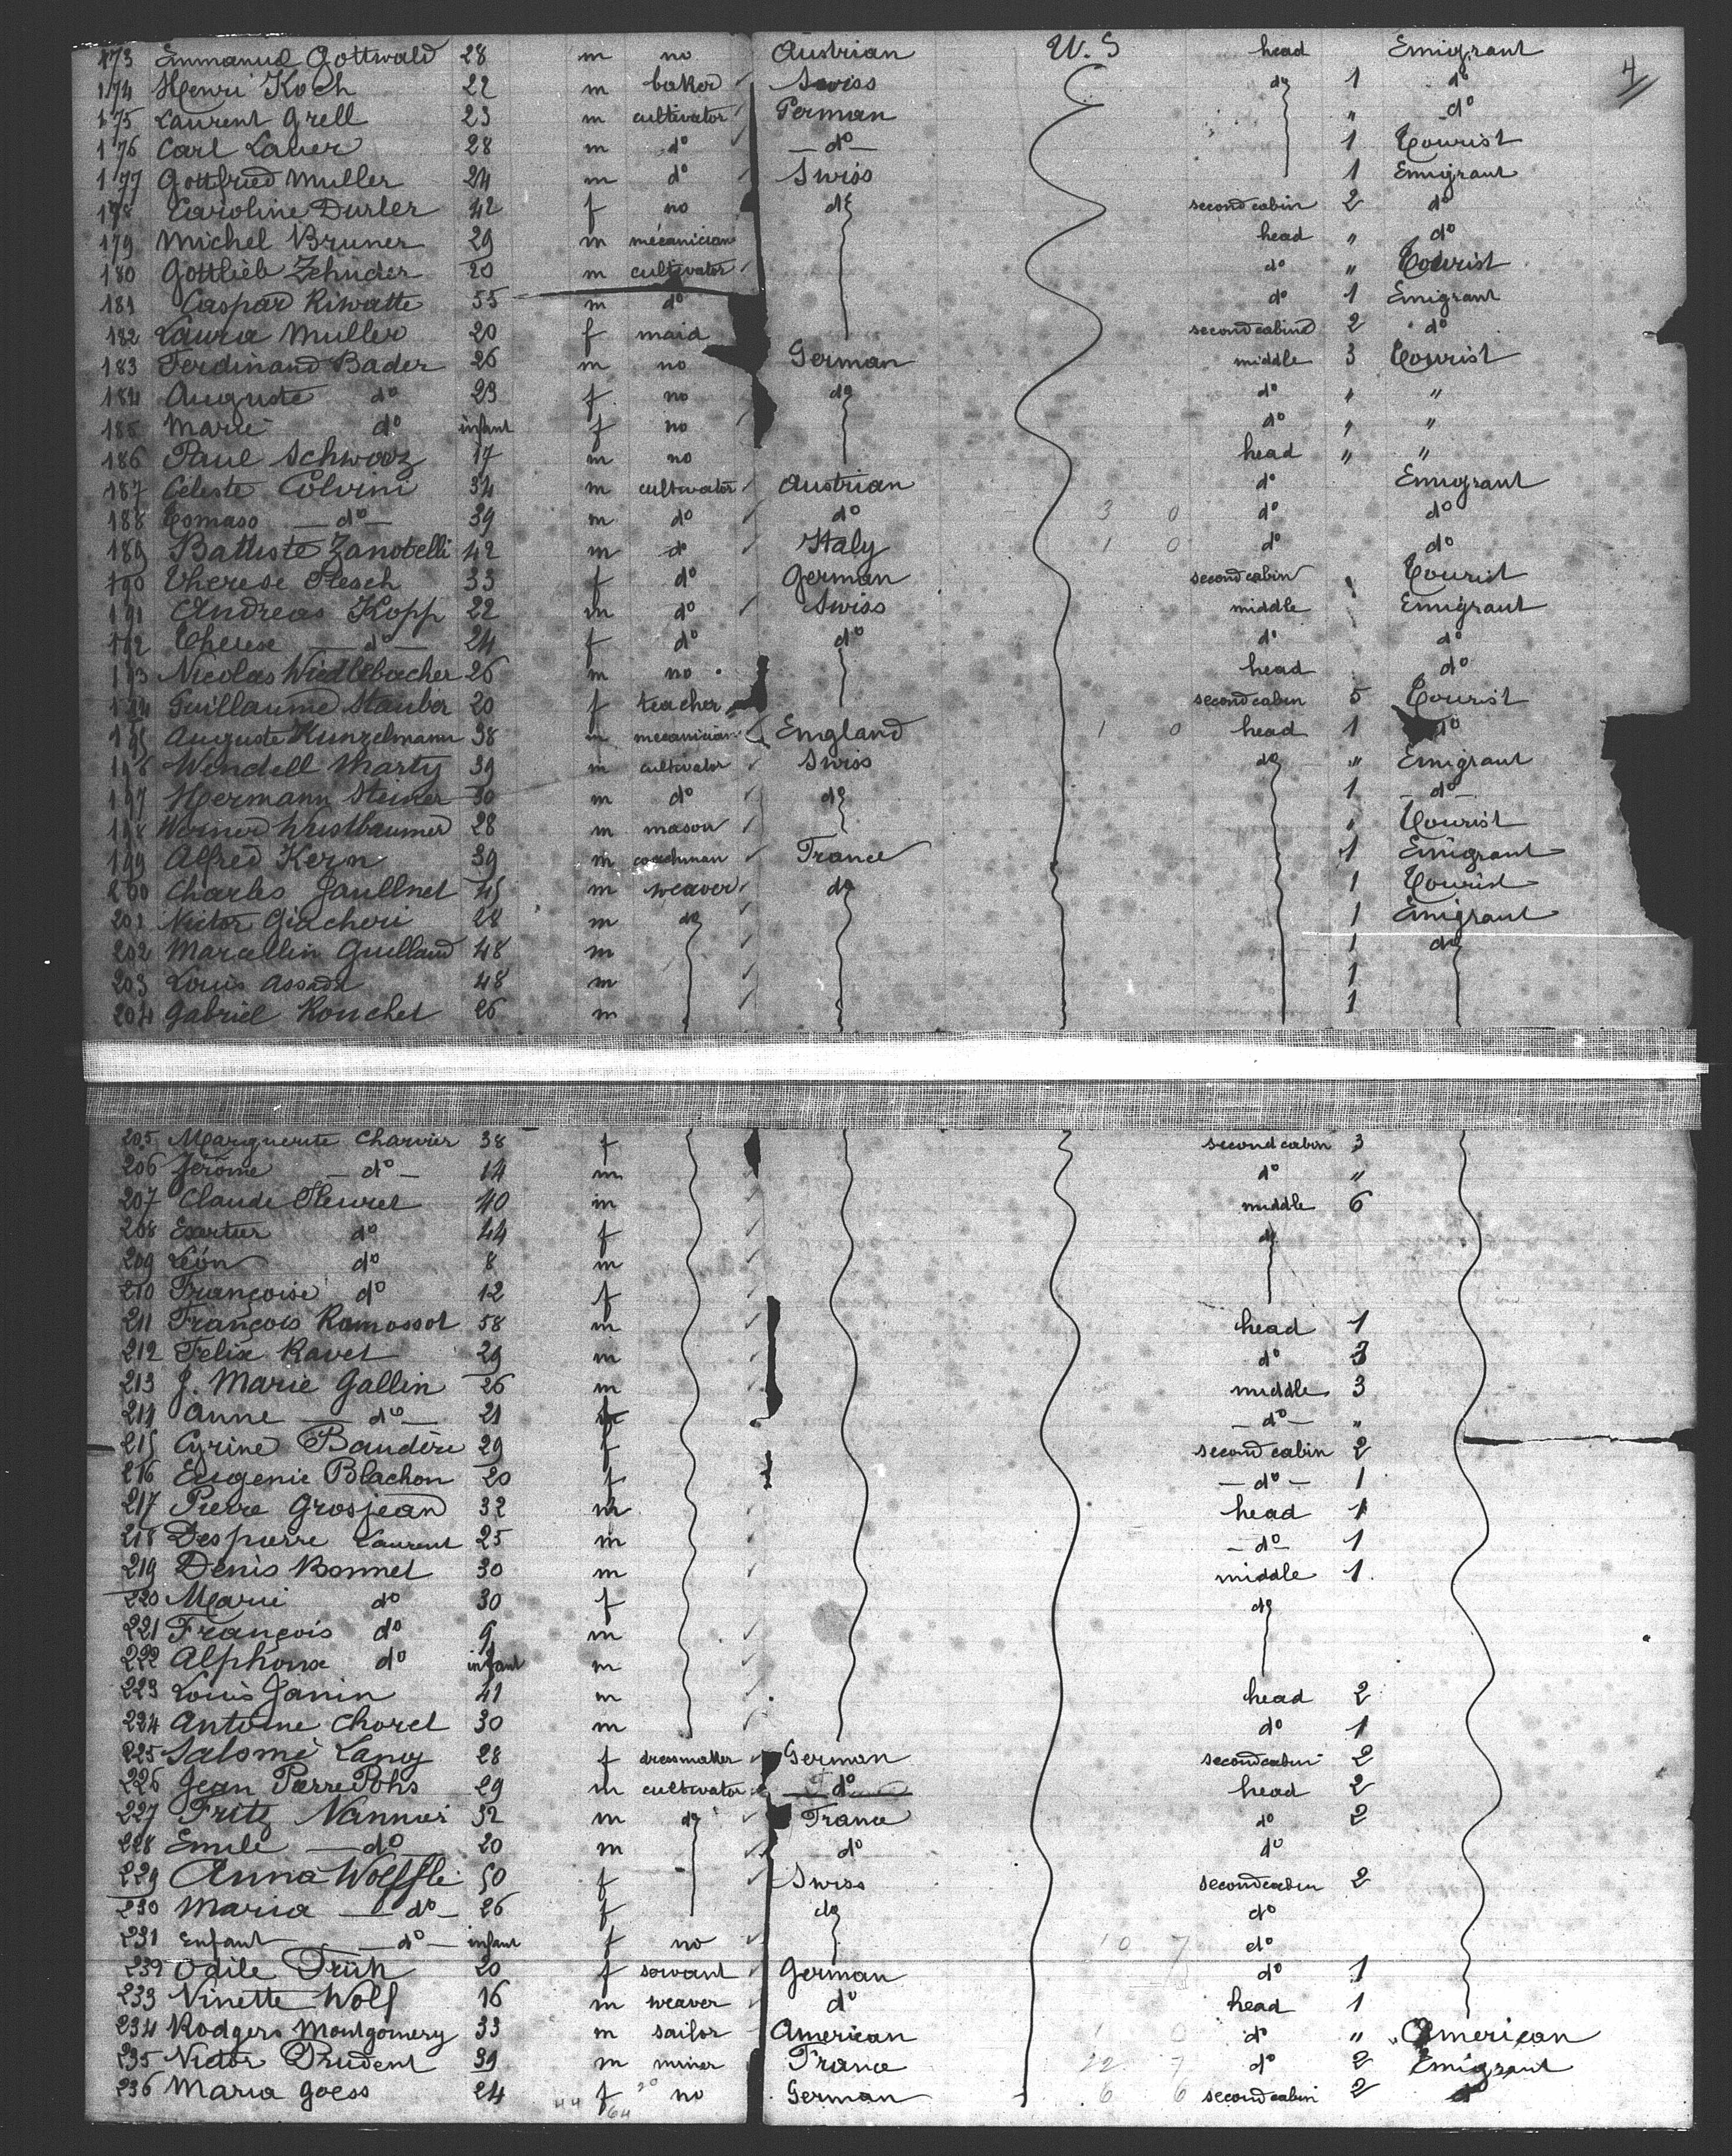 4
173 Emmanuel Gottwald 28 m no Austrian U.S head Emigrant
174 Henri Koch 22 m baker Swiss do 1 do
175 Laurent Grell 23 m cultivator German " do
176 Carl Lauer 28 m do do 1 Tourist
177 Gottfried Muller 24 m do Swiss 1 Emigrant
178 Caroline Durler 42 f no do second cabin 2 do
179 Michel Bruner 29 m mécanician head " do
180 Gottlieb Zehnder 20 m cultivator do " Tourist
181 Caspar Riwatte 55 m do do 1 Emigrant
182 Laura Muller 20 f maid second cabin 2 do
183 Ferdinand Bader 26 m no German middle 3 Tourist
184 Auguste do 23 f no do do " "
185 Marie do infant f no do " "
186 Paul Schwarz 17 m no head " "
187 Céleste Colvini 34 m cultivator Austrian do Emigrant
188 Tomaso do 39 m do do 3 0 do do
189 Battiste Zanotelli 42 m do Italy 1 0 do do
190 Therese Plesch 33 f do German second cabin Tourist
191 Andreas Kopp 22 m do Swiss middle Emigrant
192 Therese do 24 f do do do do
193 Nicolas Wiedlebacher 26 m no head do
194 Guillaume Stauber 20 f teacher second cabin 5 Tourist
195 Auguste Kunzelmann 38 m mecanician England 1 0 head 1 do
196 Wendell Marty 39 m cultivator Swiss do " Emigrant
197 Hermann Steiner 30 m do do 1 do
198 Werner 28 m mason " Tourist
199 Alfred Kern 39 m coachman France 1 Emigrant
200 Charles Jaullnet 45 m weaver do 1 Tourist
201 Victor Giacheri 28 m do 1 Emigrant
202 Marcellin Guilland 48 m 1 do
203 Louis Assada 48 m 1
204 Gabriel Rouchet 26 m 1
205 Marguerite Charvier 38 f second cabin 3
206 Jérôme do 14 m do "
207 Claude Fleuret 40 m middle 6
208 Exartier do 44 f do
209 Léon do 8 m
210 Françoise do 12 f
211 François Ramossot 58 m head 1
212 Felix Ravet 29 m do 3
213 J. Marie Gallin 26 m middle 3
214 Anne do 21 f do "
215 Cyrine Baudère 29 f second cabin 2
216 Eugenie Blachon 20 f do 1
217 Pierre Grosjean 32 m head 1
218 Despierre Laurent 25 m do 1
219 Denis Bonnet 30 m middle 1
220 Marie do 30 f do
221 François do 9 m
222 Alphonse do infant m
223 Louis Janin 41 m head 2
224 Antoine Choret 30 m do 1
225 Salomé Lang 28 f dressmatter German second cabin 2
226 Jean Pierre Pohs 29 m cultivator do head 2
227 Fritz Nannier 32 m do France do 2
228 Emile do 20 m do do
229 Anna Wolffli 50 f Swiss second cabin 2
230 Maria do 26 f do do
231 Enfant do infant f no 10 7 do
232 Odile Früh 20 f servant German do 1
233 Ninette Wolf 16 m weaver do head 1
234 Rodgers Montgomery 33 m sailor American 1 0 do " American
235 Victor Prudent 39 m miner France 22 7 do 2 Emigrant
236 Maria Goess 24 f no German 6 6 second cabin 2 d
44 64 20